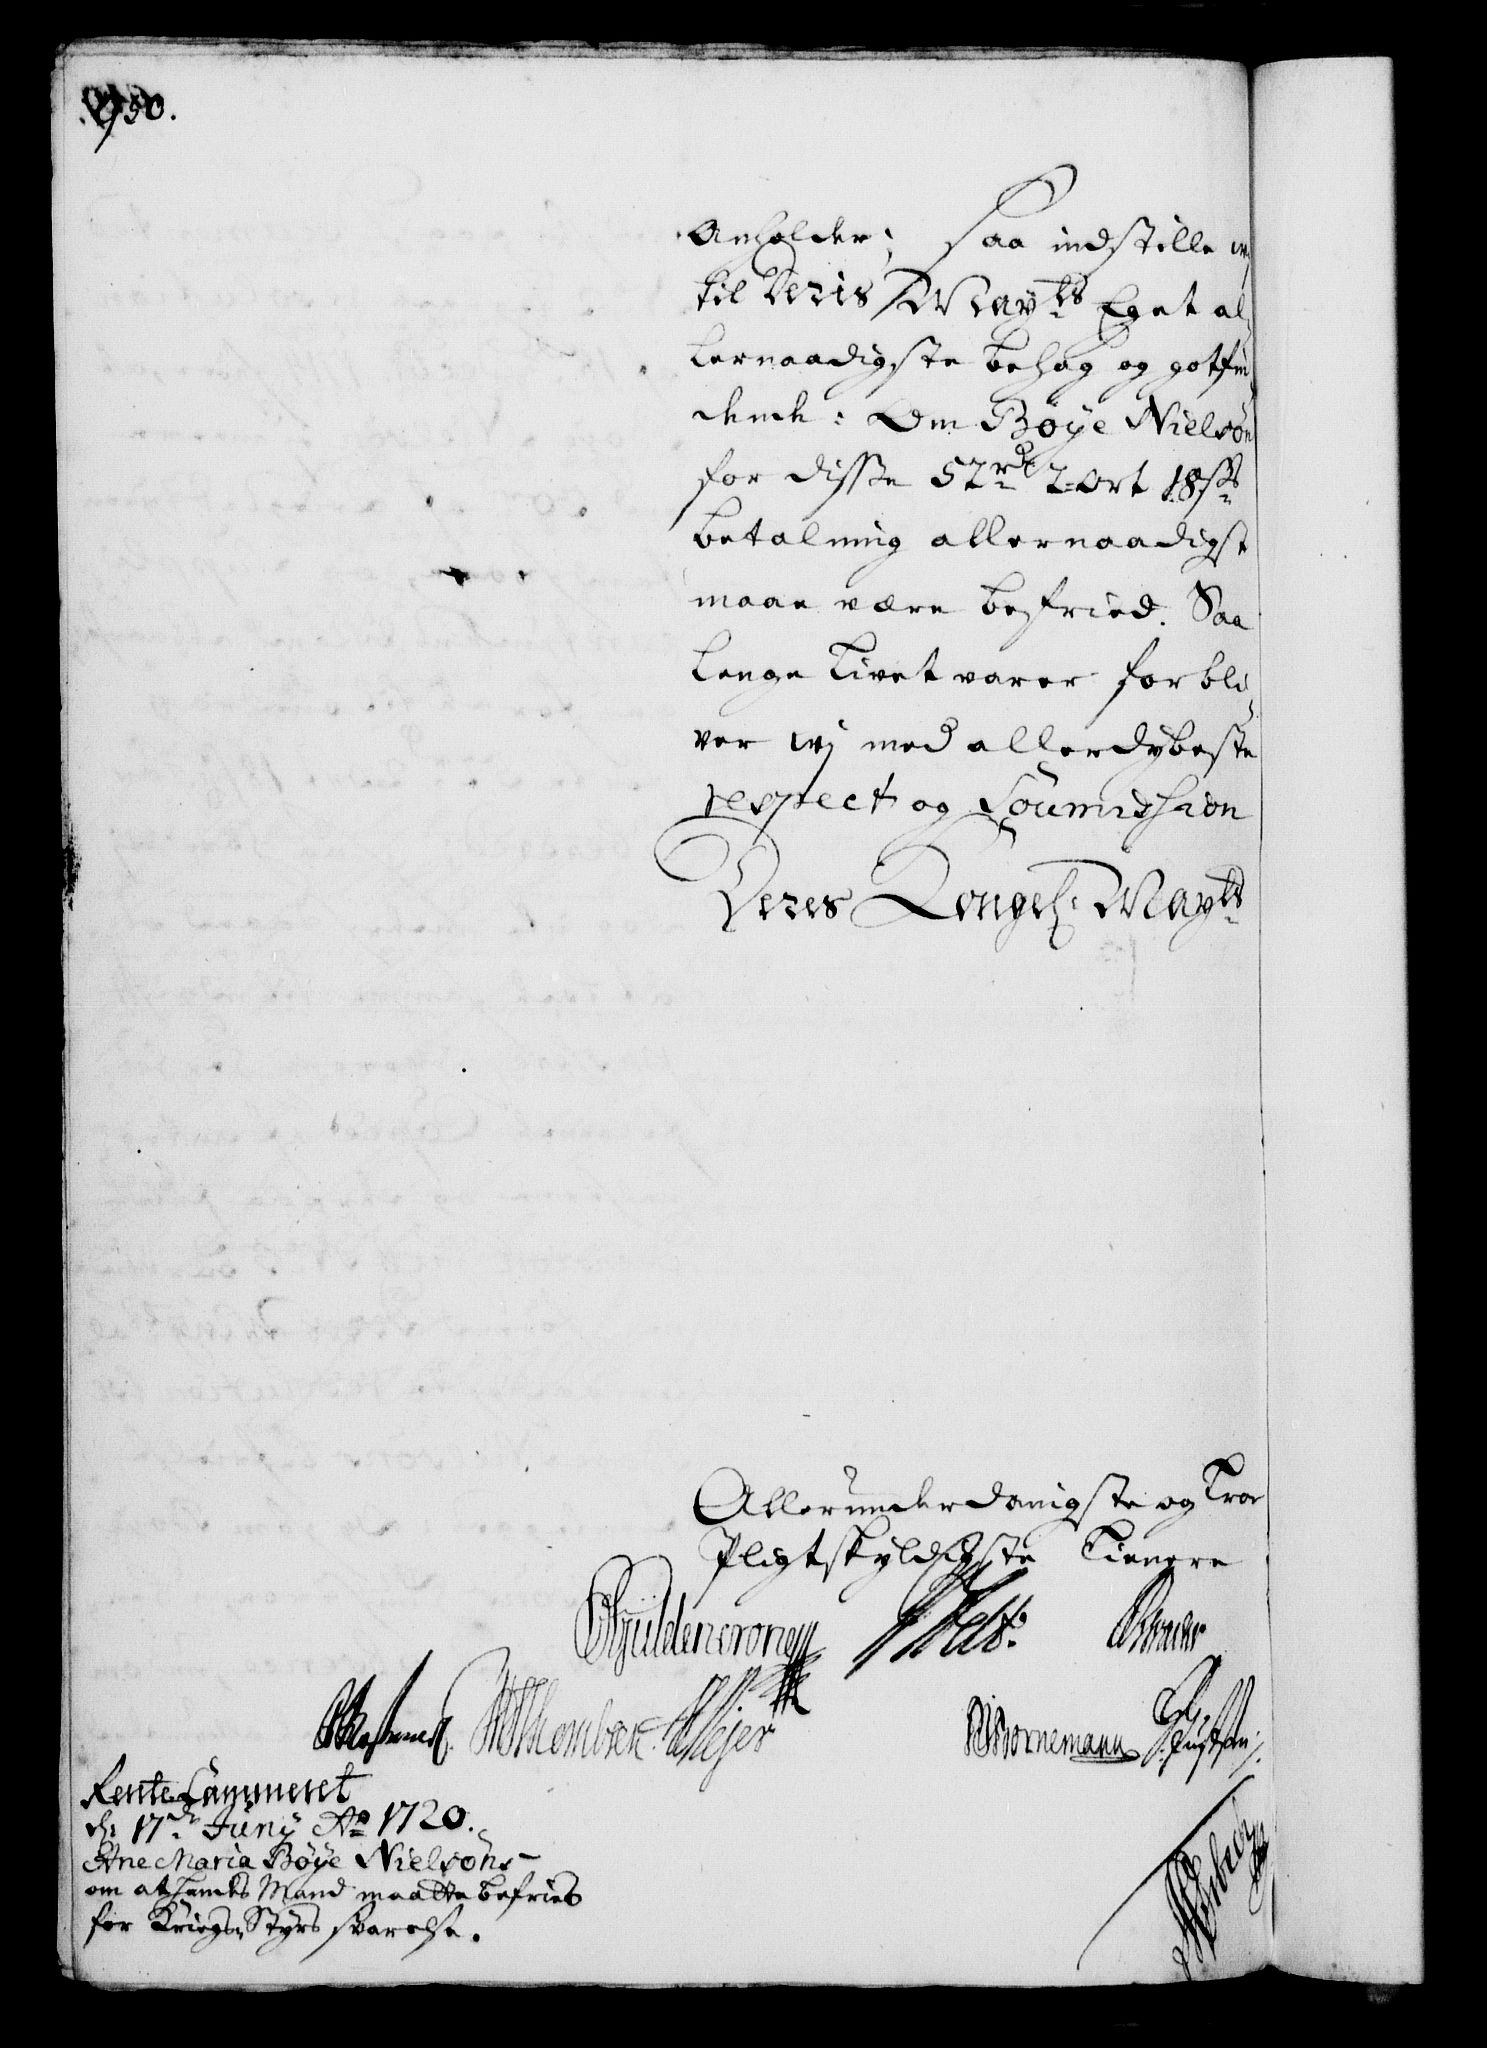 950.
Anholder; Saa indstille wj
til Deris Maÿts Eget al,
lernaadigste behag og gotfin,
dende: Om Böÿe Nielsön
for disse 52rd 2 Ort 18ss
betalning allernaadigst
maae være befried. Saa
lenge Livet varer forbli,
ver wj med allerdybeste
respect og Soumission
Deres Kongel: Mayts
Allerunderdanigste og Troe
Pligtskyldigste Tienere
Güldencrone
Meÿer
Bornemann
Rente Cammeret
d: 17de Junÿ Ao 1720.
Ane Maria Böÿe Nielsöns
om at hendes Mand maatte befries
for Kriegs Styrs svarelse.